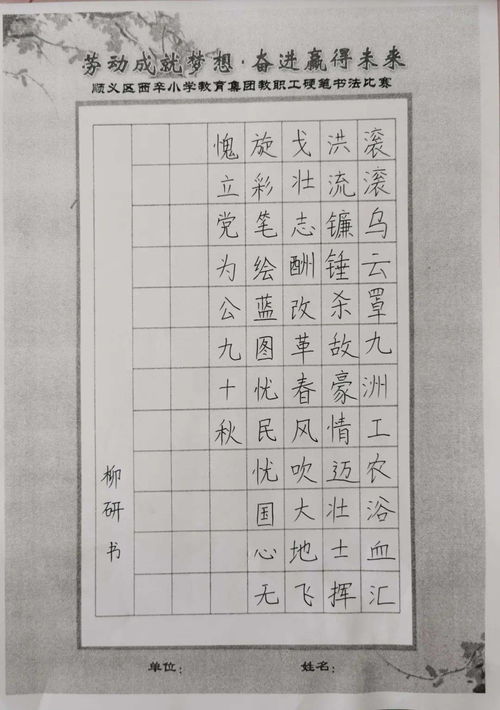 劳动成就梦想·奋进赢得未来
顺义区西辛小学教育集团教职工硬笔书法比赛
滚滚乌云罩九洲工农浴血汇
洪流镰锤杀敌豪情迈壮士挥
戈壮志酬改革春风吹大地飞
旋彩笔绘蓝图忧民忧国心无
愧立党为公九十秋
柳研书
单位：
姓名：